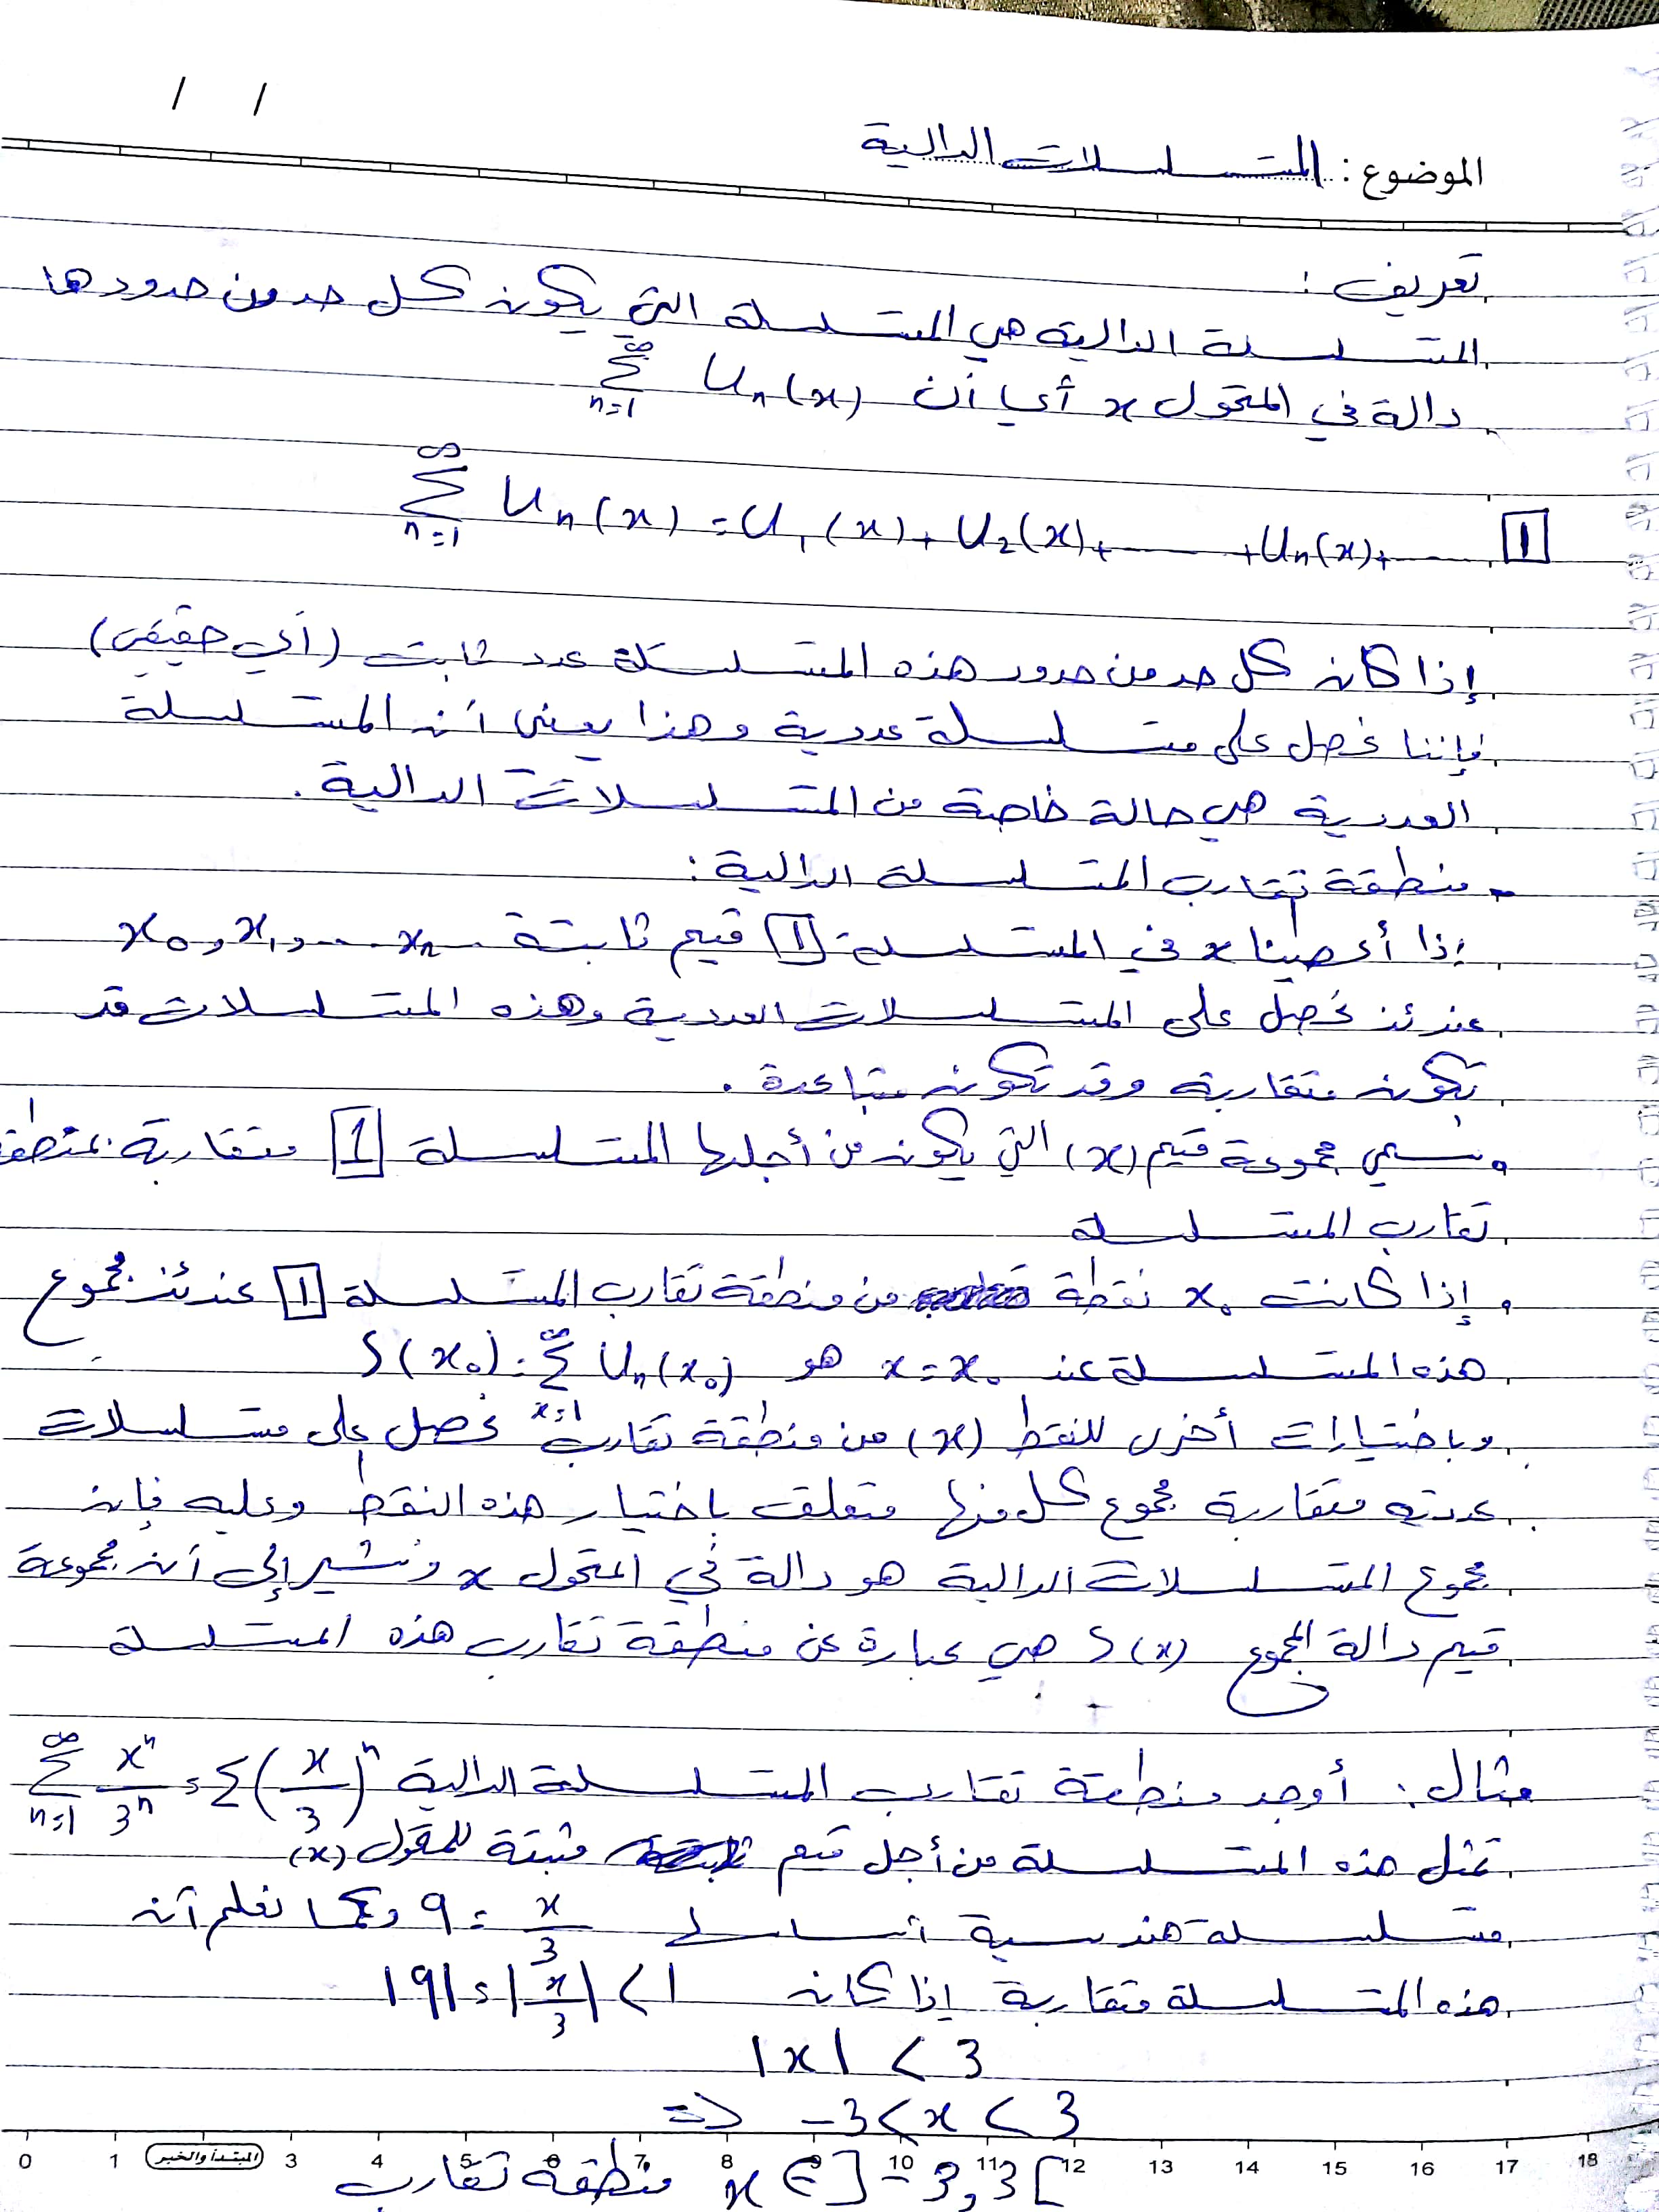 / /
الموضوع: المتسلسلات الدالية
تعريف:
المتسلسلة الدالية هي المتسلسلة التي يكون كل حد من حدودها
دالة في المتحول x أي أن \sum_{n=1}^{∞} U_n(x)
\sum_{n=1}^{∞} U_n(x) = U_1(x) + U_2(x) + ...... + U_n(x) + ...... [1]
إذا كان كل حد من حدود هذه المتسلسلة عدد ثابت (أي حقيقي)
فإننا نحصل على متسلسلة عددية وهذا يعني أن المتسلسلة
العددية هي حالة خاصة من المتسلسلات الدالية.
- منطقة تقارب المتسلسلة الدالية:
إذا أعطينا x في المتسلسلة [1] قيم ثابتة x_0, x_1, ... x_n ..
عندئذ نحصل على المتسلسلات العددية وهذه المتسلسلات قد
تكون متقاربة وقد تكون متباعدة.
وتسمى مجموعة قيم (x) التي يكون من أجلها المتسلسلة [1] متقاربة بمنطقة
تقارب المتسلسلة
وإذا كانت x_0 نقطة من منطقة تقارب المتسلسلة [1] عندئذ مجموع
هذه المتسلسلة عند x = x_0 هو S(x_0) = \sum_{x=1}^{∞} U_n(x_0)
وباختيارات أخرى للنقط (x) من منطقة تقارب نحصل على متسلسلات
عددية متقاربة مجموع كل منها متعلق باختيار هذه النقط وعليه فإن
مجموع المتسلسلات الدالية هو دالة في المتحول x ونشير إلى أن مجموعة
قيم دالة المجموع S(x) هي عبارة عن منطقة تقارب هذه المتسلسلة
مثال: أوجد منطقة تقارب المتسلسلة الدالية \sum_{n=1}^{∞} \frac{x^n}{3^n} = \sum (\frac{x}{3})^n
تمثل هذه المتسلسلة من أجل قيم مثبتة للمتحول (x)
متسلسلة هندسية أساسها q = \frac{x}{3} وكما نعلم أن
هذه المتسلسلة متقاربة إذا كان |q| = |\frac{x}{3}| < 1
|x| < 3
=> -3 < x < 3
x ∈ ]-3, 3[ منطقة تقارب
0 1 المبتدأ والخبر 3 4 5 6 7 8 9 10 11 12 13 14 15 16 17 18